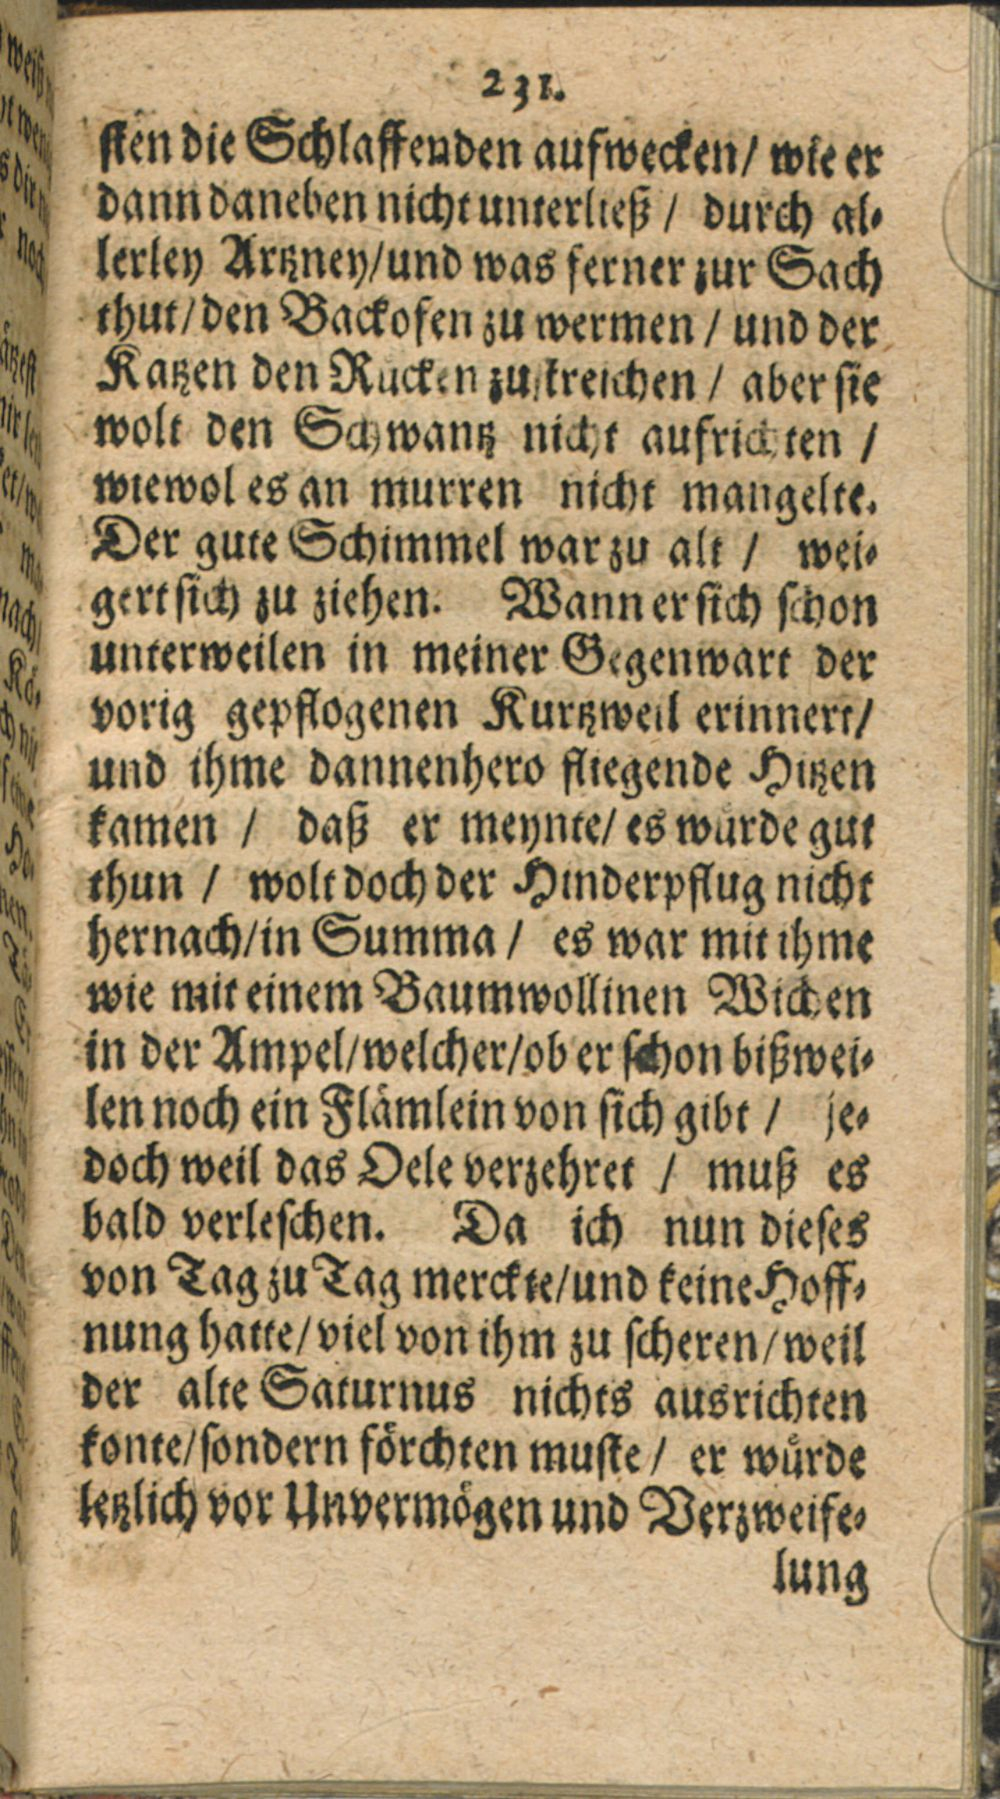 231.
sten die Schlaffenden aufwecken/ wie er
dann daneben nicht unterließ / durch al-
lerley Artzney/und was ferner zur Sach
thut/den Backofen zu wermen / und der
Katzen den Rucken zu streichen / aber sie
wolt den Schwantz nicht aufrichten /
wiewol es an murren nicht mangelte.
Der gute Schimmel war zu alt / wei-
gert sich zu ziehen. Wann er sich schon
unterweilen in meiner Gegenwart der
vorig gepflogenen Kurtzweil erinnert/
und ihme dannenhero fliegende Hitzen
kamen / daß er meynte/ es wurde gut
thun / wolt doch der Hinderpflug nicht
hernach/in Summa / es war mit ihme
wie mit einem Baumwollinen Wichen
in der Ampel/welcher/ob er schon bißwei-
len noch ein Flämlein von sich gibt / je-
doch weil das Oele verzehret / muß es
bald verleschen. Da ich nun dieses
von Tag zu Tag merckte/und keine Hoff-
nung hatte/viel von ihm zu scheren/weil
der alte Saturnus nichts ausrichten
konte/sondern förchten muste/ er würde
letzlich vor Unvermögen und Verzweife-
lung